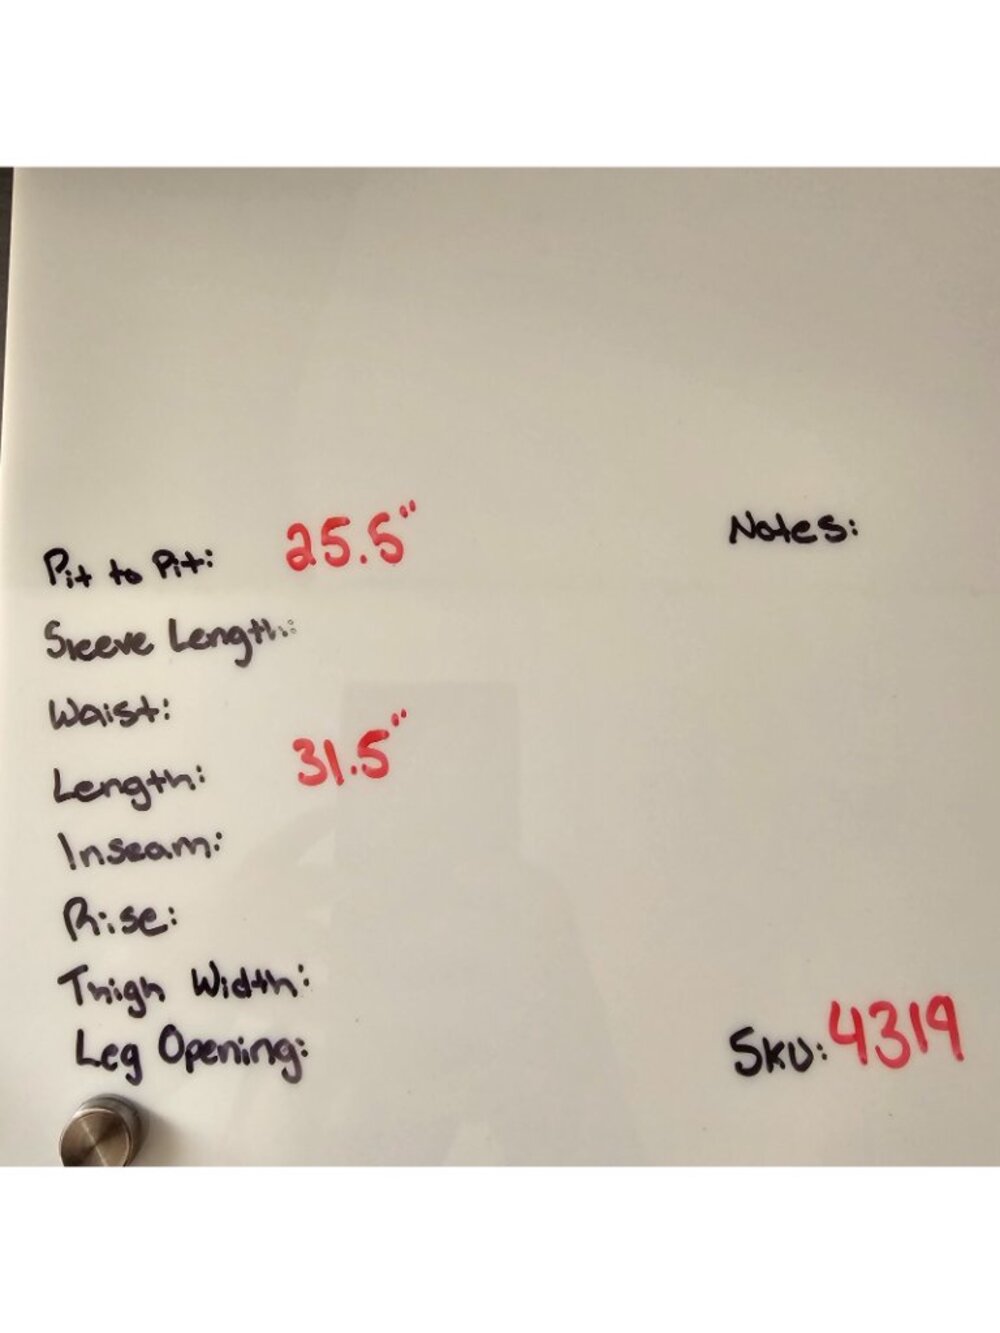 Pit to Pit: 25.5"
Sleeve Length:
Waist:
Length: 31.5"
Inseam:
Rise:
Thigh Width:
Leg Opening:
Notes:
SKU: 4319